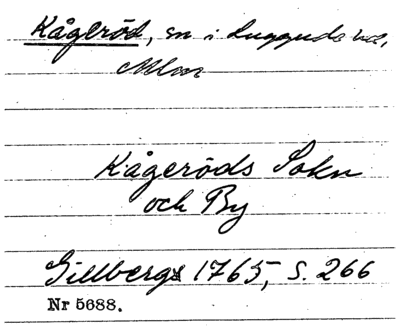 Kågeröd, sn i Luggude hd,
Mlm
Kågeröds Sokn
och By
Gillbergs 1765, S. 266
Nr 5688.